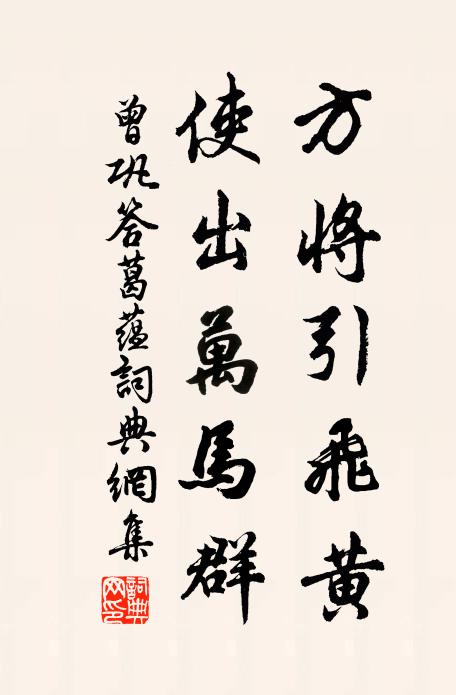 方將引飛黄
使出萬馬群
曾巩答葛蕴詞典網集
詞典網印